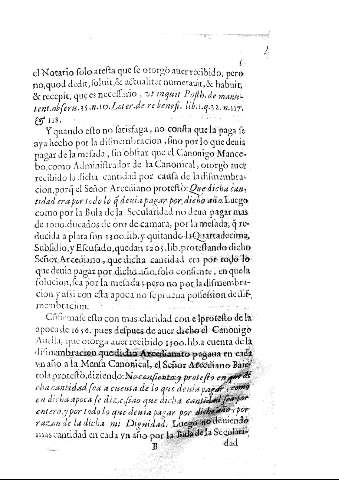 el Notario solo atesta que se otorgò auer recibido, pero
no, quod dedit, fuit, & actualiter numerauit, & habuit,
& recepit, que es necessario, vt inquit Posth. de manu-
tent. obseru. 35. n. 10. Later. de re benefi. lib. 1. q. 32. n. 117.
& 118.
Y quando esto no satisfaga, no consta que la paga se
aya hecho por la dismembracion, sino por lo que deuia
pagar de la mesada, sin obstar que el Canonigo Mance-
bo, como Administrador de la Canonical, otorgò auer
recibido la dicha cantidad por causa de la dismembra-
cion, porq̃ el Señor Arcediano protestò: Que dicha can-
tidad era por todo lo q̃ deuia pagar por dicho año. Luego
como por la Bula de la Secularidad no deuia pagar mas
de 1000. ducados de oro de camara, por la mesada, q̃ re-
ducida a plata son 1500. lib. y quitando la Quartadecima,
Subsidio, y Escusado, quedan 1205. lib. protestando dicho
Señor Arcediano, que dicha cantidad era por todo lo
que deuia pagar por dicho año, solo consiente, en que la
solucion, sea por la mesada; pero no por la dismembra-
cion y assi con esta apoca no se prueua possession de dis-
membracion.
Confirmase esto con mas claridad con el protesto de la
apoca de 1656. pues despues de auer dicho el Canonigo
que otorga auer recibido 1500. lib. a cuenta de la
dismembracion que dicho Arcedianato pagaua en cada
vn año a la Mensa Canonical, el Señor Arcediano Bar-
tola protestò, diziendo: No consiento, y protesto en que di-
cha cantidad sea a cuenta de lo que deuia pagar, como
en dicha apoca se dize, sino que dicha cantidad sea por
entero, y por todo lo que deuia pagar por dicho año, por
razon de la dicha mi Dignidad. Luego no deuiendo
mas cantidad en cada vn año por la Bula de la Segulari-
B dad